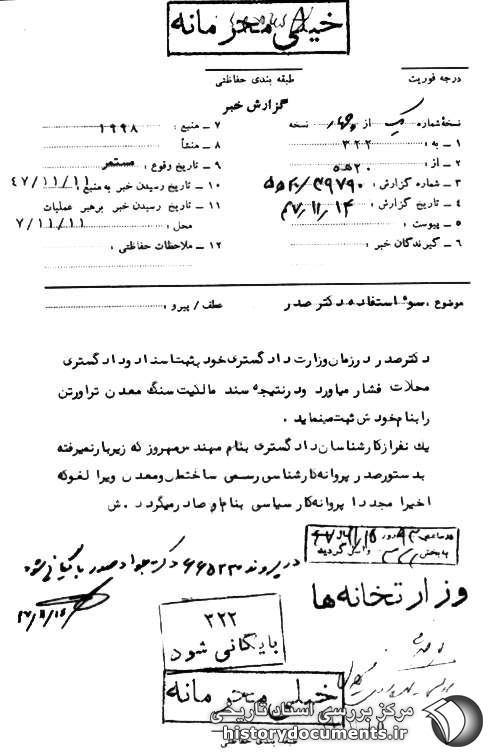 خیلی محرمانه
درجه فوریت
طبقه بندی حفاظتی
گزارش خبر
نسخهٔ شماره یک از چهار نسخه
۱ ـ به : ۳۲۲
۲ ـ از : ۲۰ ﻫ ۵
۳ ـ شماره گزارش :
۴ ـ تاریخ گزارش : ۴۷/۱۱/۱۴
۵ ـ پیوست :
۶ ـ گیرندگان خبر :
۷ ـ منبع : ۱۹۹۸
۸ ـ منشأ
۹ ـ تاریخ وقوع : مستمر
۱۰ ـ تاریخ رسیدن خبر به منبع : ۴۷/۱۱/۱۱
۱۱ ـ تاریخ رسیدن خبر برهبر عملیات
محل : ۷/۱۱/۱۱
۱۲ ـ ملاحظات حفاظتی :
موضوع : سوء استفاده دکتر صدر
عطف / پیرو :
دکتر صدر در زمان وزارت دادگستری خود به ثبت اسناد و دادگستری
محلات فشار میاورد و در نتیجه سند مالکیت سنگ معدن تراورتن
را بنام خودش ثبت مینماید .
یک نفر از کارشناسان دادگستری بنام مهندس مهروز که زیر بار نمیرفته
بدستور صدر پروانه کارشناسی رسمی ساختمان و معدن ویرا لغو که
اخیرا مجددا پروانه کار سیاسی بنام او صادر میگردد . ش
در پرونده ۶۶۵۲۳ دکتر جواد صدر بایگانی شود
وزارتخانه ها
۳۲۲
بایگانی شود
خیلی محرمانه
طبقه بندی حفاظتی
مرکز بررسی اسناد تاریخی
historydocuments.ir